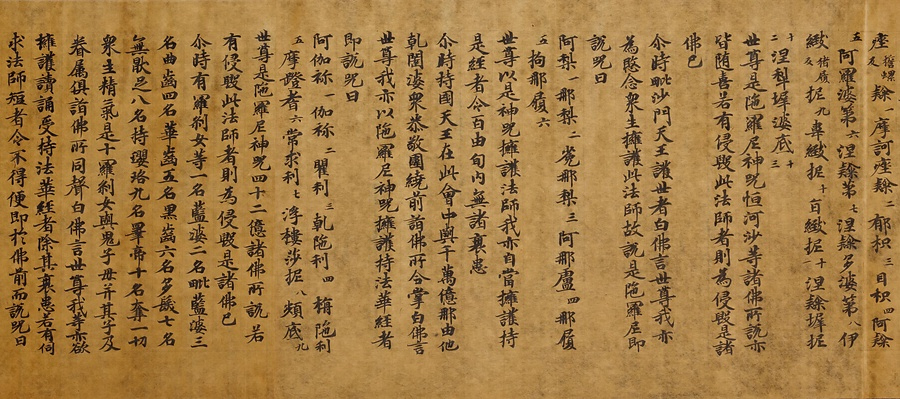 痤誓螺反隸一摩訶痤隸二郁枳三目枳四阿隸
五阿羅婆第六涅隸第七涅隸多婆第八伊
緻猪履反抳九韋緻抳十旨緻抳十一涅隸墀抳
十二涅犁墀婆底十三
世尊是陁羅尼神呪恒河沙等諸佛所說亦
皆随喜若有侵毀此法師者則為侵毀是諸
佛已
尒時毗沙門天王護世者白佛言世尊我亦
為愍念衆生擁護此法師故說是陁羅尼即
說呪曰
阿梨一那梨二㝹那梨三阿那盧四那履
五拘那履六
世尊以是神呪擁護法師我亦自當擁護持
是經者令百由旬內無諸衰患
尒時持國天王在此會中與千萬億那由他
乹闥婆衆恭敬圍繞前詣佛所合掌白佛言
世尊我亦以陁羅尼神呪擁護持法華經者
即說呪曰
阿伽祢一伽祢二瞿利三乹陁利四栴陁利
五摩蹬耆六常求利七浮樓莎抳八頞底九
世尊是陁羅尼神呪四十二億諸佛所說若
有侵毀此法師者則為侵毀是諸佛已
尒時有羅刹女等一名藍婆二名毗藍婆三
名曲齒四名華齒五名黑齒六名多髮七名
無猒足八名持瓔珞九名睪帝十名奪一切
衆生精氣是十羅刹女與鬼子母并其子及
眷屬俱詣佛所同聲白佛言世尊我等亦欲
擁護讀誦受持法華經者除其衰患若有伺
求法師短者令不得便即於佛前而說呪曰